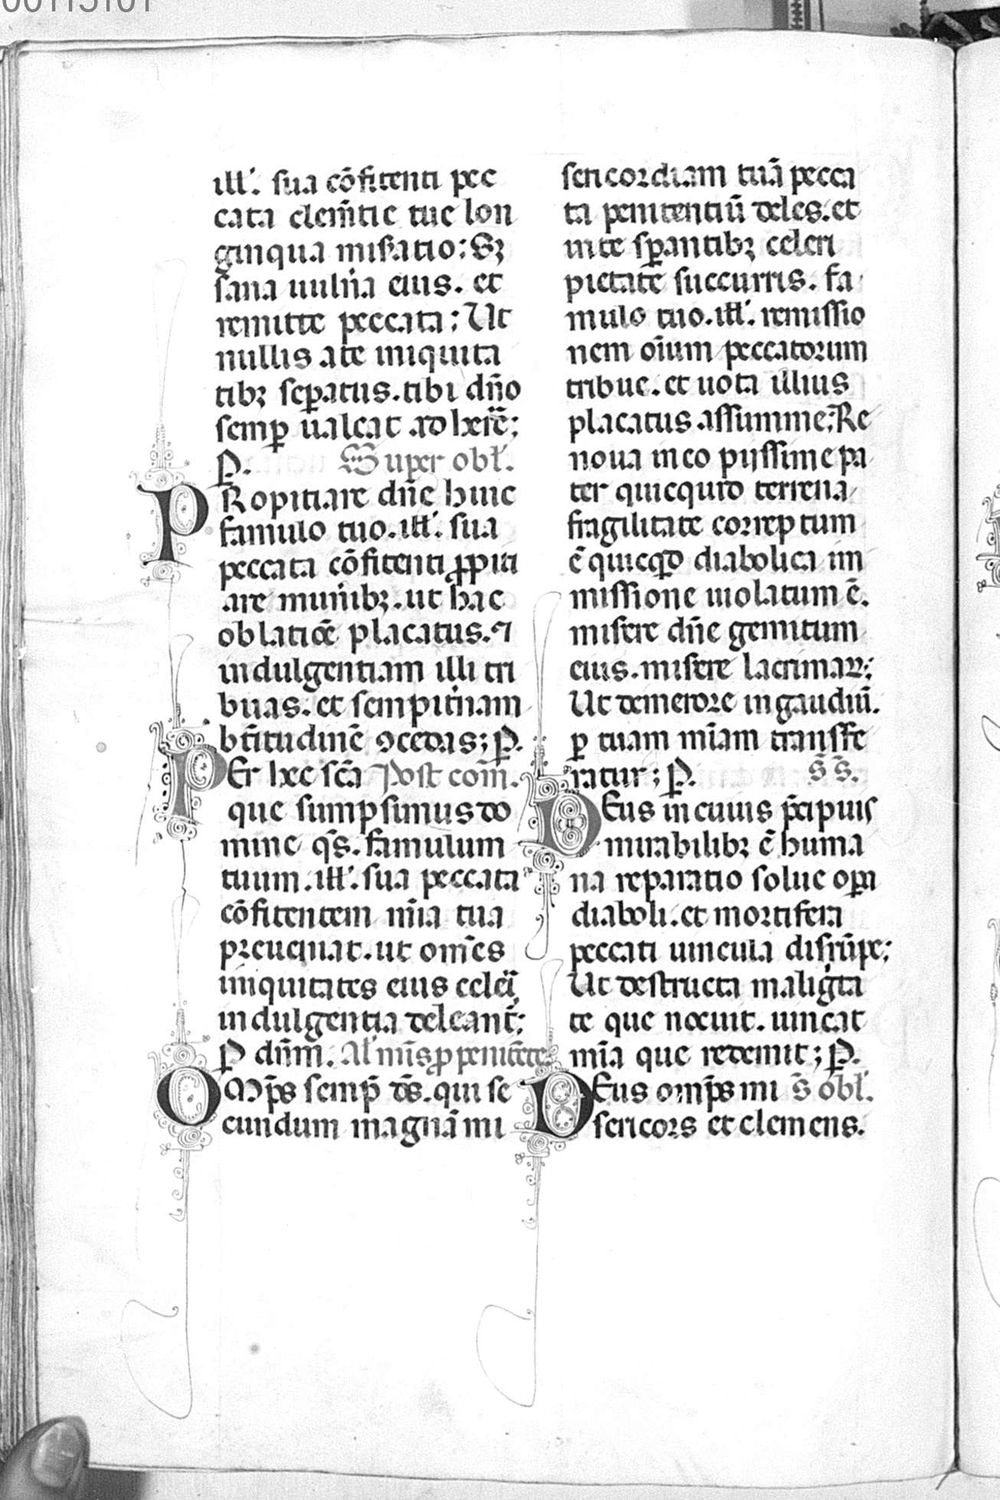 illꝰ. sua cōfitenti pec
cata clemn̄tie tue lon
ginqua misatio: Sꝫ
sana uuln̄a eius. et
remitte peccata: Ut
nullis ate iniquita
tibꝫ sepatus. tibi dn̄o
semp ualeat adherē;
P. Super obl̄.
PRopitiare dn̄e huic
famulo tuo. ill̄. sua
peccata cōfitenti ꝓpiti
are munībꝫ. ut hac
oblatiōe placatus. ⁊
indulgentiam illi tri
buas. et sempitn̄am
btītudinē ꝯcedas; P.
PEr hec sc̄a Post com̄.
que sumpsimus do
mine qs̄. famulum
tuum. ill̄. sua peccata
cōfitentem mīa tua
preueniat. ut om̄es
iniquitates eius celeri
indulgentia deleant̄;
P dn̄m. Al' mīs ꝓ penitēte
OMp̄s semp̄ ds̄. qui se
cundum magnā mi
sericordiam tuā pecca
ta penitentiū deles. et
inte sperantibꝫ celeri
pietate succurris. fa
mulo tuo. ill̄. remissio
nem oīum peccatorum
tribue. et uota illius
placatus assumme; Re
noua in eo pijssime pa
ter quicquid terrena
fragilitate correptum
ē quicqd diabolica im
missione uiolatum ē.
misere dn̄e gemitum
eius. misere lacrimaꝝ;
Ut demerore in gaudiū.
ꝑ tuam mīam transfe
ratur; P. S̄ S̄.
DEus in cuius p̄cipuis
mirabilibꝫ ē huma
na reparatio solue opa
diaboli. et mortifera
peccati uincula disrūpe;
Ut destructa malignita
te que nocuit. uincat
mīa que redemit; P.
DEus omp̄s mi S̄ obl̄.
sericors et clemens.